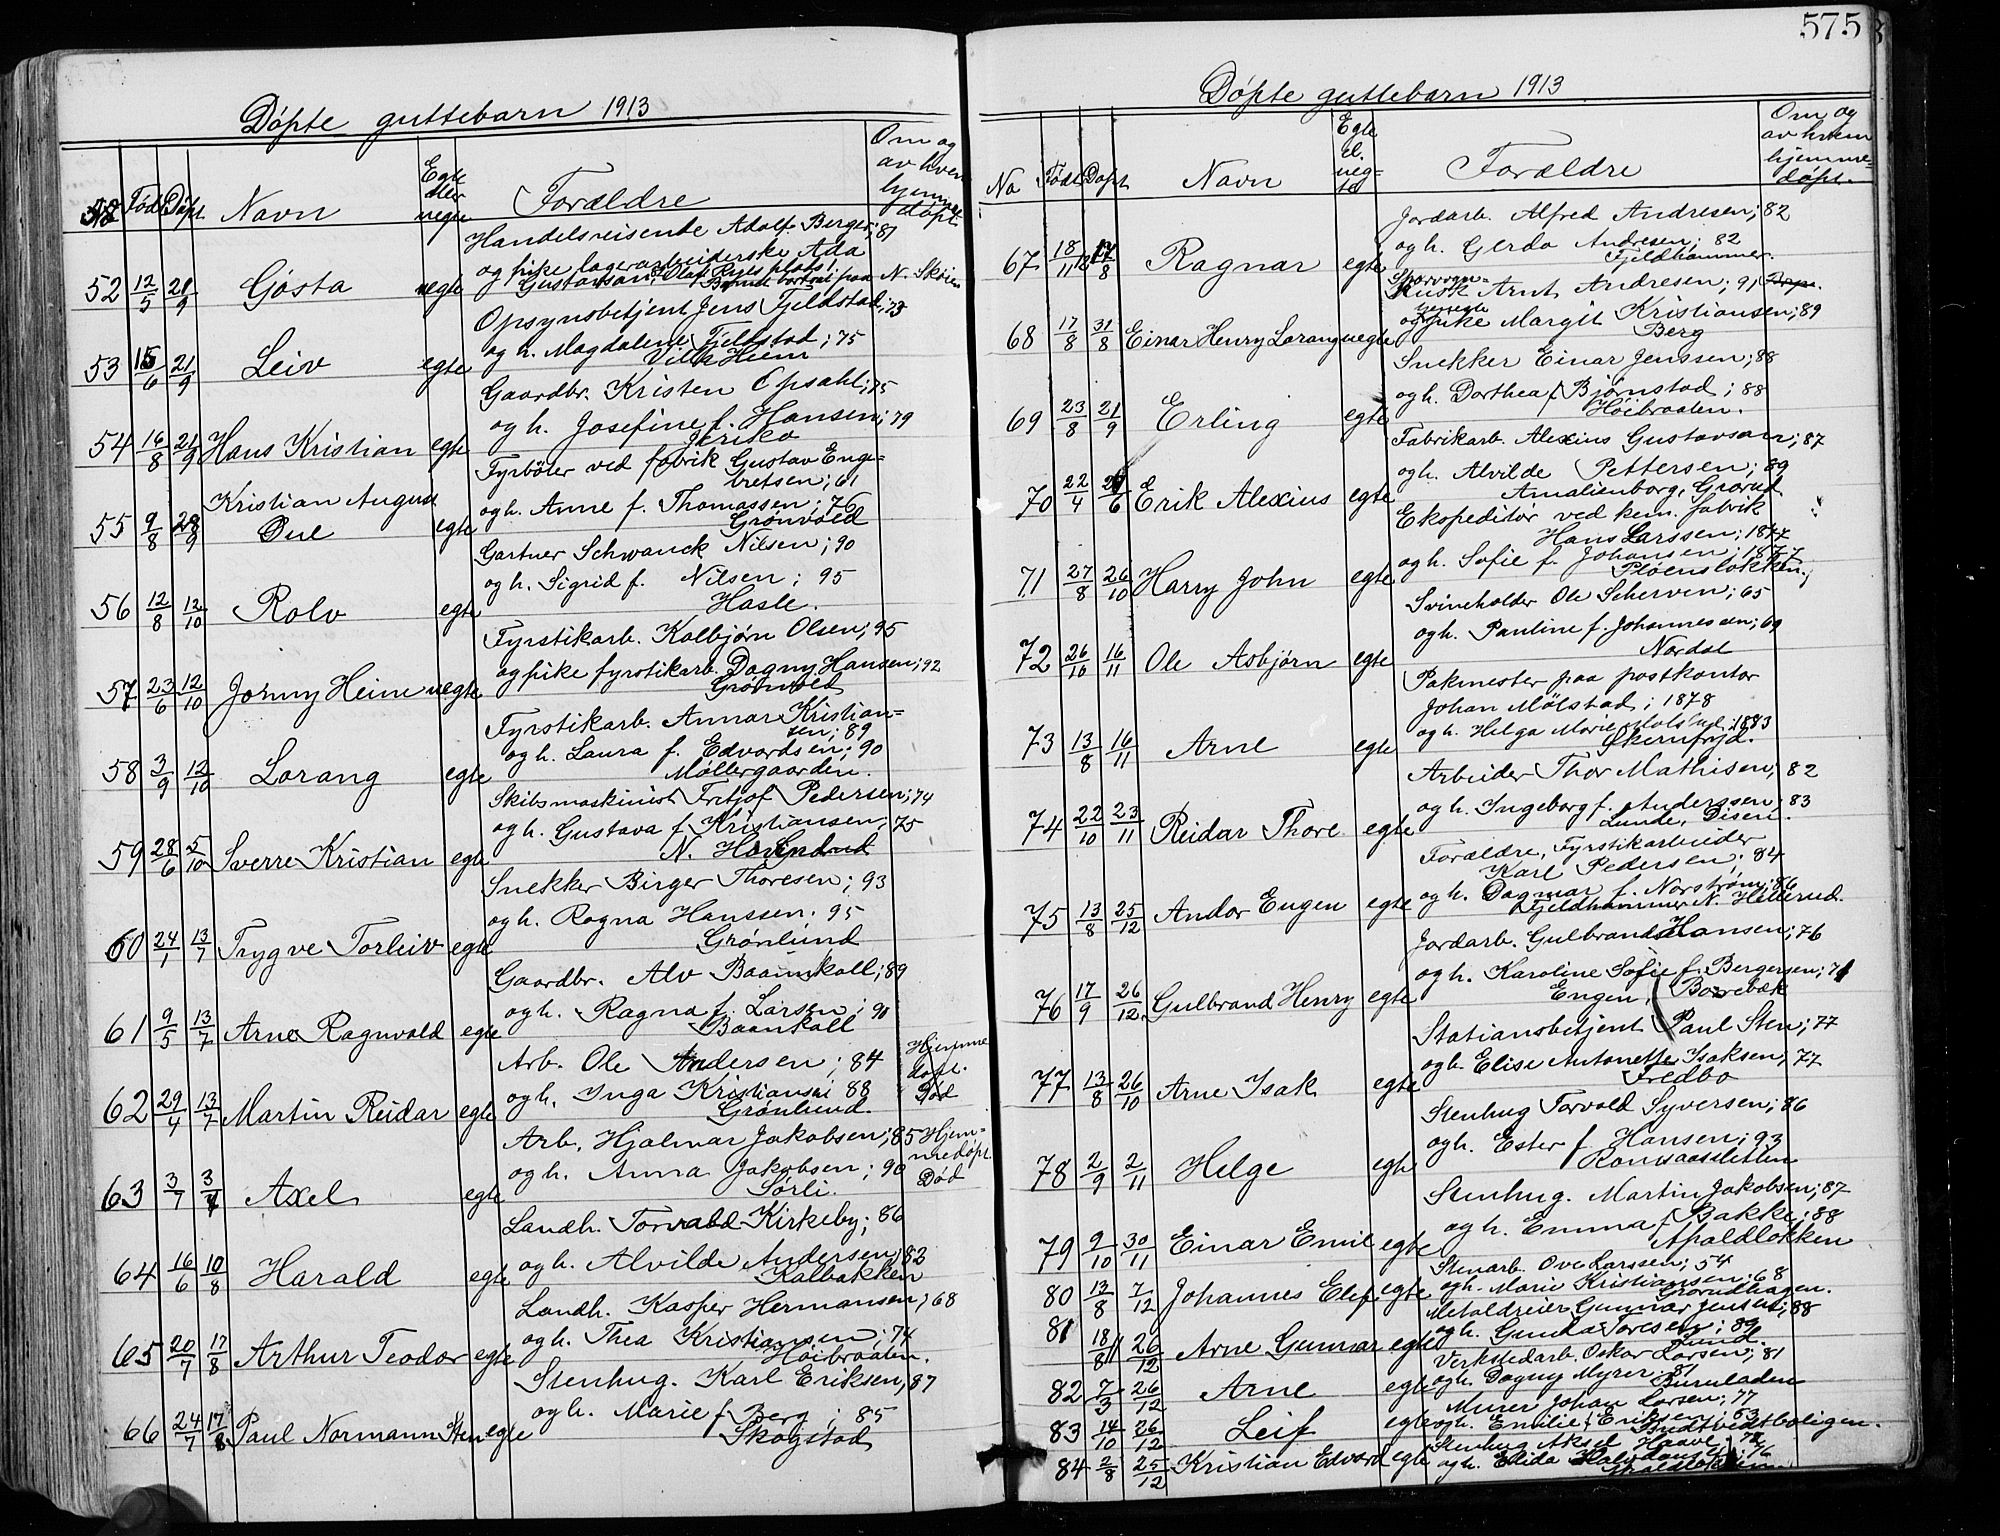 575
Døpte guttebarn 1913
No Født Døpt Navn Egte eller uegte Forældre Om og av hvem hjemmedøpt
Handelsreisende Adolf Berger; 87
og pike lagerarbeiderske Ada
52 12/5 21/9 Gösta uegte Gustavson, Olaf Ryes plads
N. Skøien
Opsynsbetjent Jens Fjeldstad; 73
53 15/6 21/9 Leiv egte og h. Magdalene Fjeldstad; 75
Villa Heim
Gaardbr. Kristen Opsahl; 75
54 16/8 21/9 Hans Kristian egte og h. Josefine f. Hansen; 79
Jeriko
Fyrböter ved fabrik Gustav Enge=
bretsen; 61
55 9/8 28/9 Kristian August
Due egte og h. Anne f. Thomassen; 76
Grønvold
Gartner Schwanck Nilsen; 90
56 12/8 12/10 Rolv egte og h. Sigrid f. Nilsen; 95
Hasle.
Fyrstikarb. Kolbjørn Olsen; 95
57 23/6 12/10 Jonny Heine uegte og pike fyrstikarb. Dagny Hansen; 92
Grønvold
Fyrstikarb. Annar Kristian=
sen; 89
58 3/9 12/10 Lorang egte og h. Laura f. Edvardsen; 90
Møllergaarden.
Skibsmaskinist Fritjof Pedersen; 74
59 28/6 5/10 Sverre Kristian egte og h. Gustava f. Kristiansen, 75
Snekker Birger Thoresen; 93
60 24/1 13/7 Trygve Torleiv egte og h. Ragna Hanssen. 95
Grønlund
Gaardbr. Alv Baankall; 89
61 9/5 13/7 Arne Ragnvald egte og h. Ragna f. Larsen; 90
Baankall
Arb. Ole Andersen; 84 Hjemme
døpt.
62 29/4 13/7 Martin Reidar egte og h. Inga Kristiansen 88 Død
Grønlund.
Arb. Hjalmar Jakobsen; 85 Hjem-
medøpt.
63 3/7 Axel egte og h. Anna Jakobsen; 90 Død
Sørli.
Landh. Torvald Kirkeby; 86
64 16/6 10/8 Harald egte og h. Alvilde Andersen; 82
Kalbakken
Landh. Kasper Hermansen; 68
65 20/7 17/8 Arthur Teodor egte og h. Thea Kristiansen; 74
Høibraaten.
Stenhug. Karl Eriksen, 87
66 24/7 17/8 Paul Normann Sten egte og h. Marie f. Berg; 85
Skogstad
Døpte guttebarn 1913
No Født Døpt Navn Egte el. ueg=te Forældre Om og av hvem hjemme=døpt.
Jordarb. Alfred Andresen; 82
67 18/11 Ragnar egte og h. Gerda Andresen; 82
Fjeldhammer.
Sporvogn=
Kusk Arnt Andresen; 91
68 17/8 31/8 Einar Henry Lorang uegte og pike Margit Kristiansen; 89
Berg
Snekker Einar Jenssen; 88
69 23/8 21/9 Erling egte og h. Dorthea f. Bjørnstad; 88
Høibraaten.
Fabrikarb. Alexius Gustavsen; 87
70 22/4 Erik Alexius egte og h. Alvilde Pettersen; 89
Amalienborg, Grorud
Ekspeditør ved kem. fabrik
Hans Larssen; 1877
71 27/8 26/10 Harry John egte og h. Sofie f. Johansen; 1877
Pløensløkken.
Svineholder Ole Scherven; 65
72 26/10 16/11 Ole Asbjørn egte og h. Pauline f. Johannessen; 69
Nordal
Pakmester paa postkontor
Johan Mölstad; 1878
73 13/8 16/11 Arne egte og h. Helga Marie Molstad; 1883
Arbeider Thor Mathisen; 82
74 22/10 23/11 Reidar Thore egte og h. Ingeborg f. Anderssen; 83
Lunde, Disen.
Forældre, Fyrstikarbeider
Karl Pedersen; 84
75 13/8 25/12 Andor Eugen egte og h. Dagmar f. Norstrøm; 86
Fjeldhammer N. Hellerud.
Jordarb. Gulbrand Hansen; 76
76 17/9 26/12 Gulbrand Henry egte og h. Karoline Sofie f. Bergersen; 71
Engen, Borrebæk
Stationsbetjent Paul Sten; 77
77 13/8 26/10 Arne Isak egte og h. Elise Antonette Isaksen; 77
Fredbo
Stenhug Torvald Syversen; 86
78 2/9 2/11 Helge egte og h. Ester f. Hansen; 93
Romsaassletten
Stenhug. Martin Jakobsen; 87
79 9/10 30/11 Einar Emil egte og h. Emma f. Bakke; 88
Apaldløkken
Stenarb. Ove Larssen; 54
80 13/8 7/12 Johannes Elef egte og h. Marie Kristiansen; 68
Grorudhagen.
Metaldreier Gunnar Jensen; 88
81 18/8 26/12 Arne Gunnar egte og h. Gunda Toresen; 89
Lund.
Verkstedarb. Oskar Larsen; 81
82 7/3 26/12 Arne egte og h. Dagny Myrer 81
Murer Johan Larsen; 77
83 14/10 26/12 Leif egte og h. Emilie f. Eriksen; 83
Bredtvedtboligen.
Stenhug Aksel Haave; 72
84 2/8 25/12 Kristian Edvard egte og h. Elida Halvdansen; 76
Apaldløkken